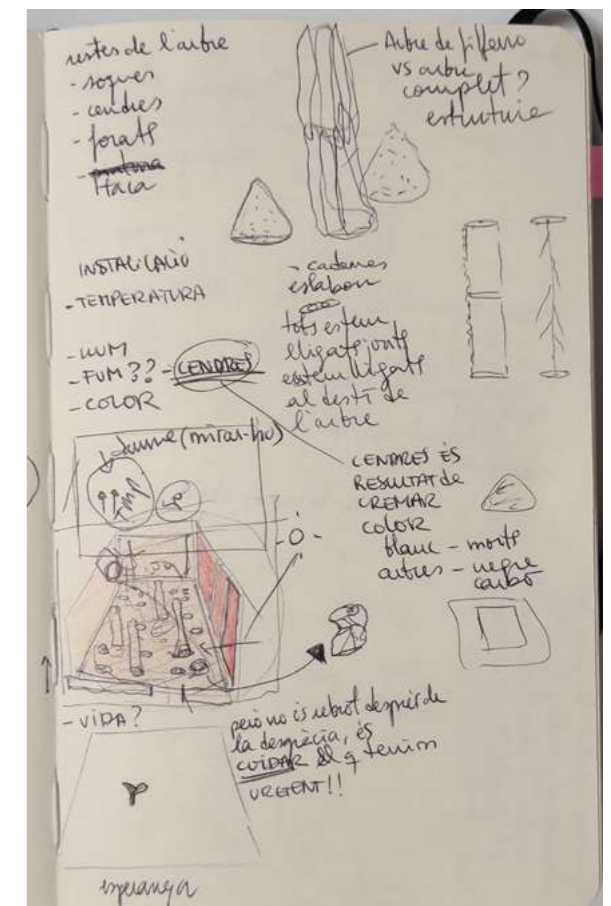 restes de l'arbre
- soques
- cendres
- forats
- pintura
Haca
- Arbre de filferro
vs arbre
complet?
estrutuie
INSTAL·LACIÓ
- TEMPERATURA
- LLUM
- FUM?? - CENDRES
- COLOR
- cadames
eslabon
tots estem
lligats, onts
estem lligats
al destí de
l'arbre
Jaume (mirar-ho)
CENDRES ÉS
RESULTAT de
CREMAR
COLOR
blanc - morts
altres - negre
carbó
- VIDA?
però no és rebrot després de
la desgràcia, és
CUIDAR el q tenim
URGENT!!
esperança